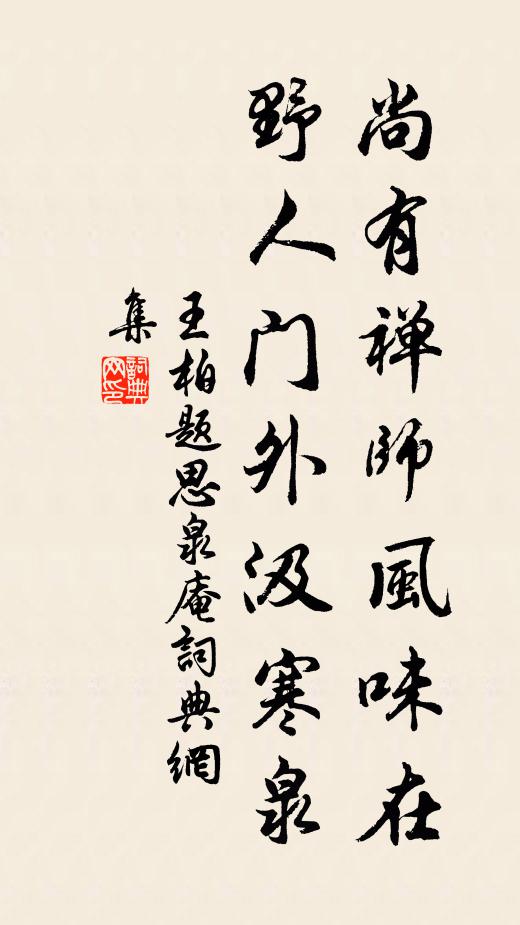 尚有禅師風味在
野人门外汲寒泉
王柏题思泉庵詞典網
集
詞典
网印